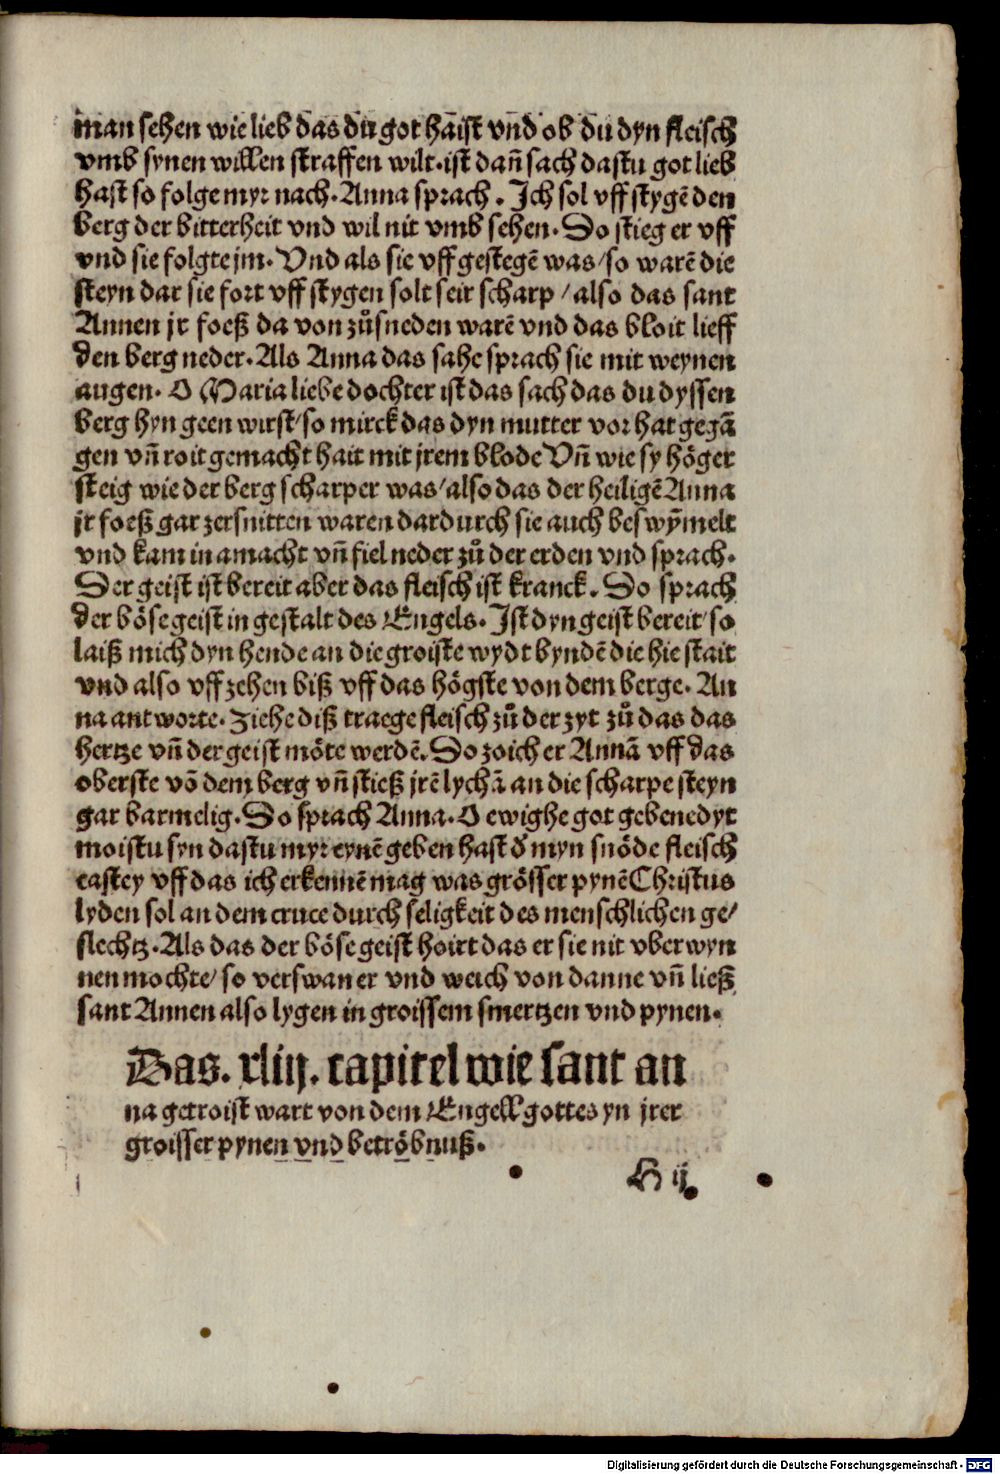 man sehen wie lieb das du got haist vnd ob du dyn fleisch
vmb synen willen straffen wilt·ist dañ sach dastu got lieb
hast so folge myr nach·Anna sprach. Ich sol vff stygē den
berg der bitterheit vnd wil nit vmb sehen·Do stieg er vff
vnd sie folgte jm·Vnd als sie vff gestegē was/so warē die
steyn dar sie fort vff stygen solt seir scharp/also das sant
Annen jr foeß da von zůsneden warē vnd das bloit lieff
den berg neder·Als Anna das sahe sprach sie mit weynen
augen·O Maria liebe dochter ist das sach das du dyssen
berg hyn geen wirst/so mirck das dyn mutter vor hat gegā
gen vñ roit gemacht hait mit jrem blode Vñ wie sy höger
steig wie der berg scharper was/also das der heiligē Anna
jr foeß gar zersnitten waren dardurch sie auch beswȳmelt
vnd kam in amacht vñ fiel neder zů der erden vnd sprach·
Der geist ist bereit aber das fleisch ist kranck. Do sprach
der böse geist in gestalt des Engels·Ist dyn geist bereit/so
laiß mich dyn hende an die groiste wydt byndē die hie stait
vnd also vff zehen biß vff das högste von dem berge·An
na antworte·Ziehe diß traege fleisch zů der zyt zů das das
hertze vñ der geist möte werdē·Do zoich er Annā vff das
oberste vō dem berg vñ stieß jrē lychā an die scharpe steyn
gar barmelig·Do sprach Anna·O ewighe got gebenedyt
moistu syn dastu myr eynē geben hast d̕ myn snöde fleisch
castey vff das ich erkennē mag was grösser pynē Christus
lyden sol an dem cruce durch seligkeit des menschlichen ge/
slechtz·Als das der böse geist hoirt das er sie nit vberwyn
nen mochte/so verswan er vnd weich von danne vñ ließ
sant Annen also lygen in groissem smertzen vnd pynen·
Das. xliij. capitel wie sant an
na getroist wart von dem Engell gottes yn jrer
groisser pynen vnd betröbnuß·
H ij
Digitalisierung gefördert durch die Deutsche Forschungsgemeinschaft - DFG